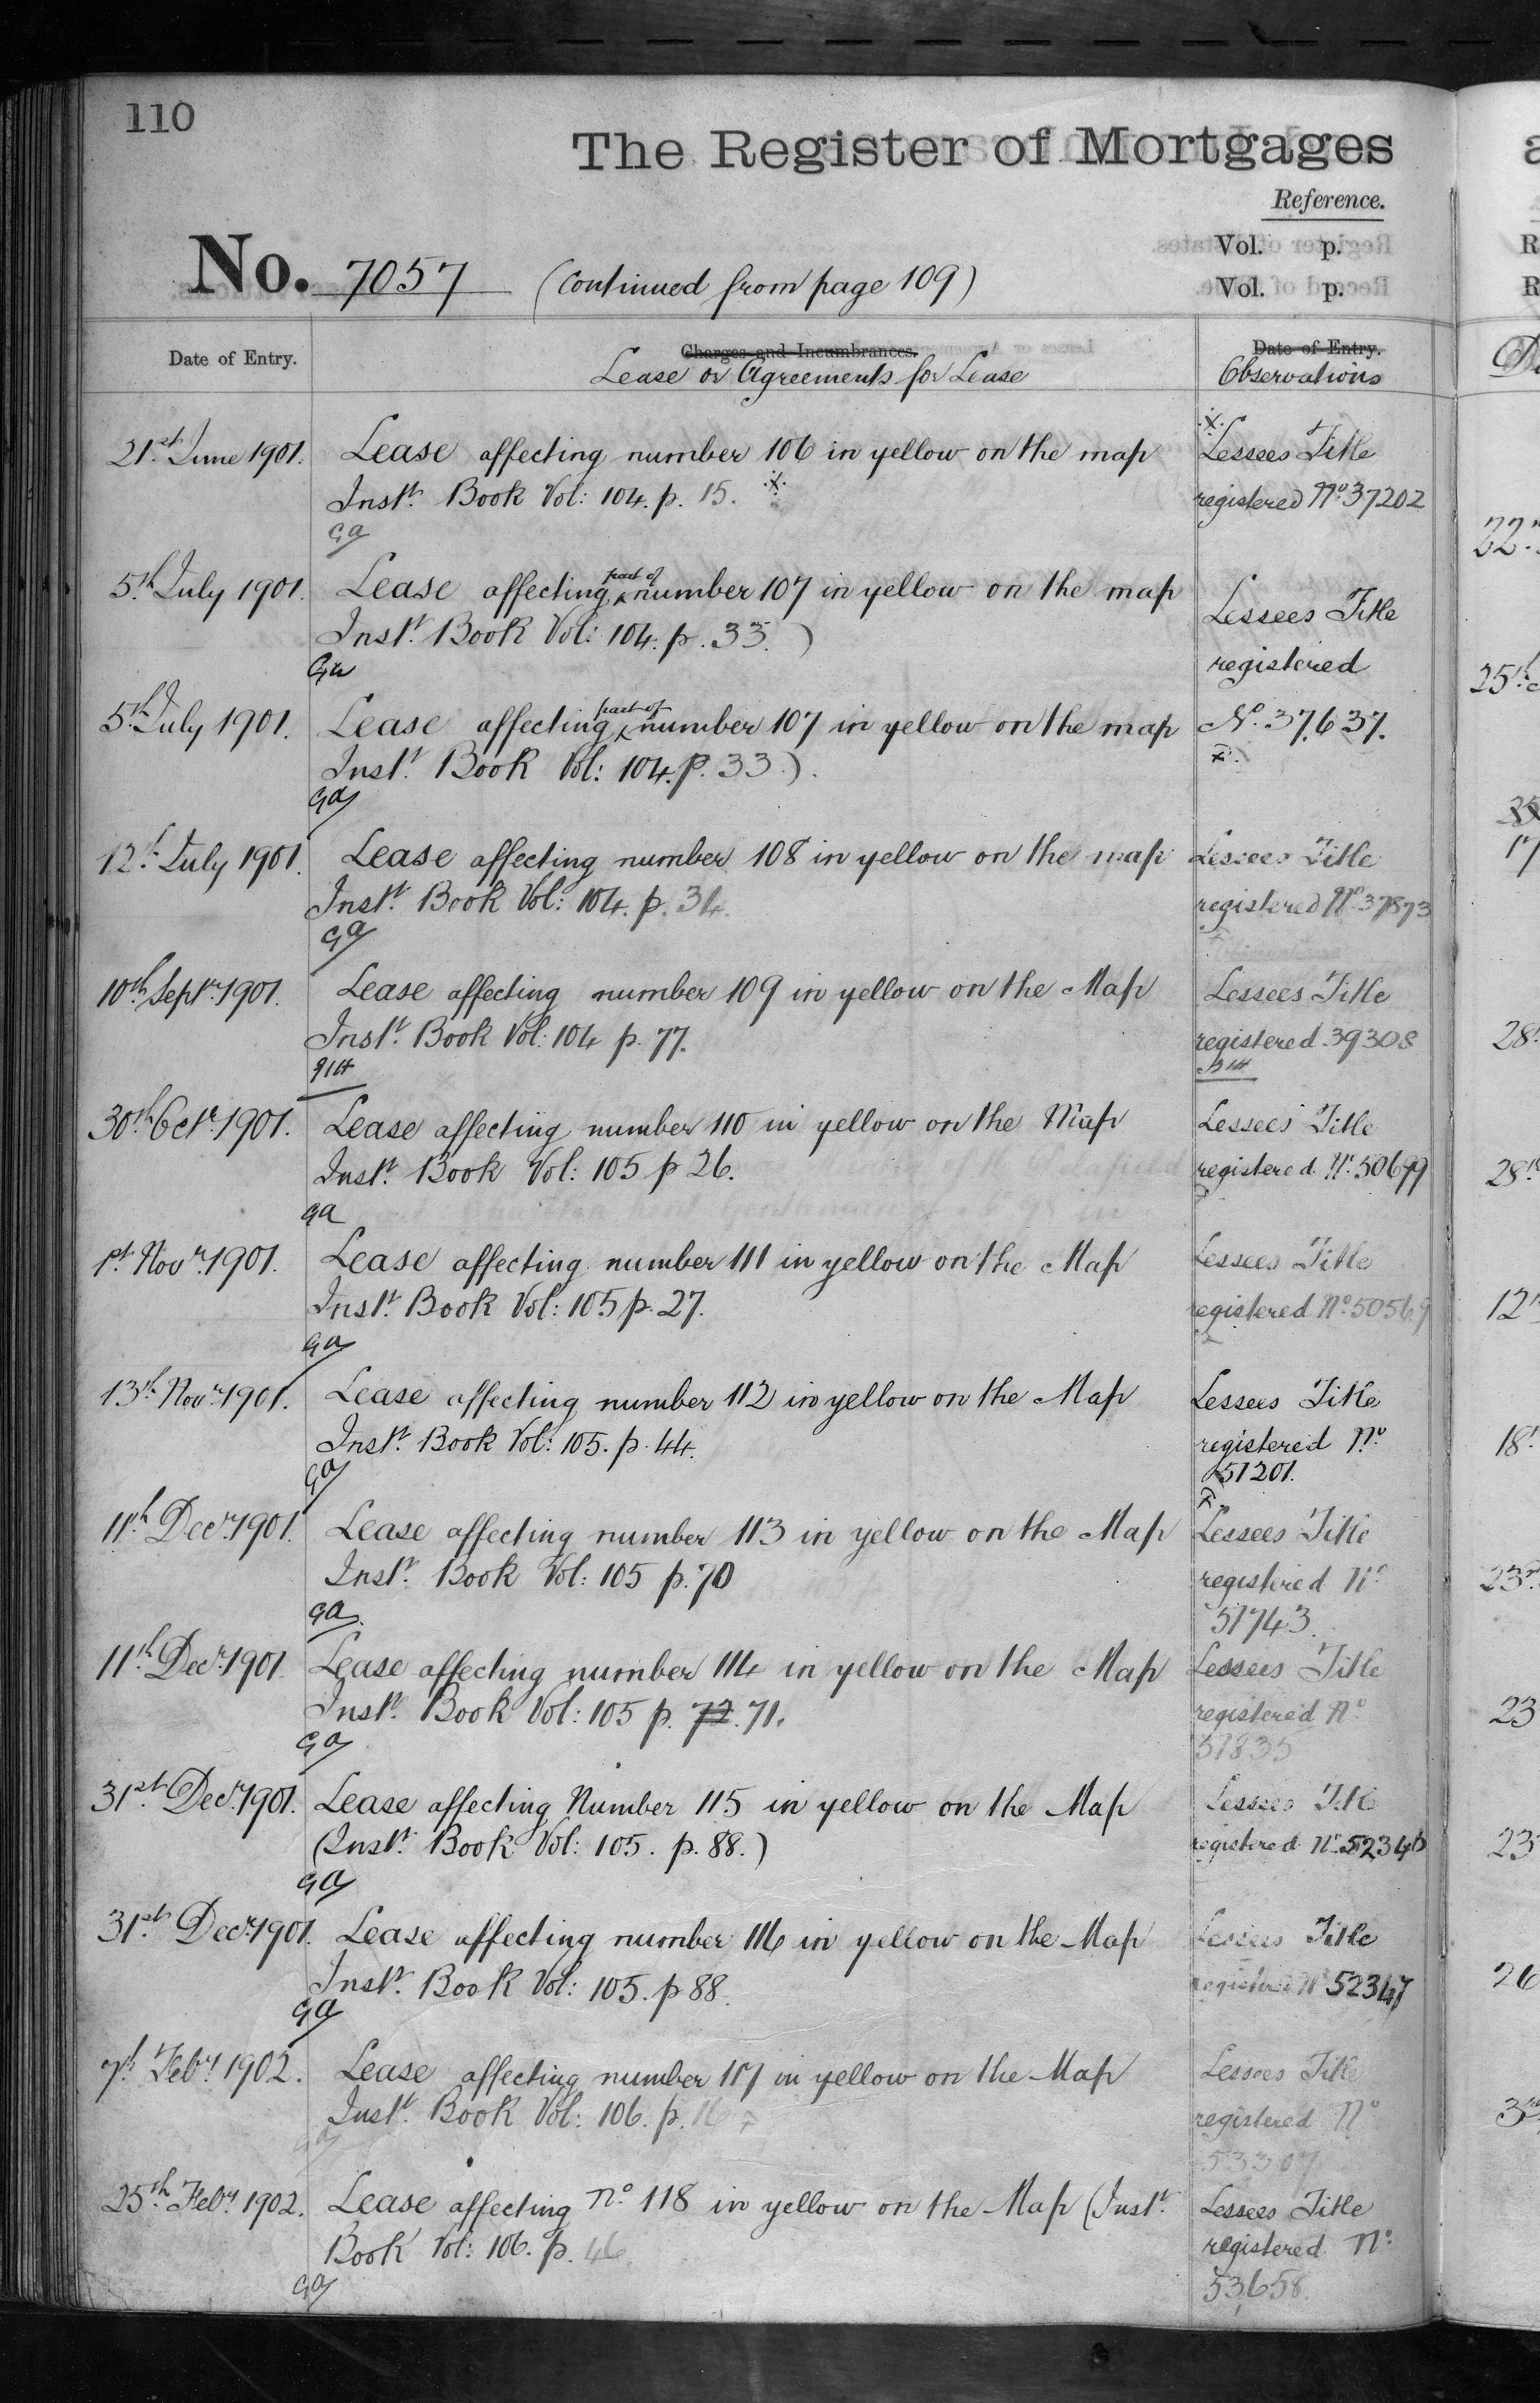 110
The Register of Mortgages
Reference.
Vol. p.
No. 7057 (Continued from page 109)
Vol. p.
Date of Entry.
Charges and Incumbrances.
Date of Entry.
Lease or Agreements for Lease
Observations
21st June 1901. Lease affecting number 106 in yellow on the map Lessees Title
Instt. Book Vol: 104. p. 15. registered No. 37202
GA
5th July 1901. Lease affecting part of number 107 in yellow on the map Lessees Title
Instt. Book Vol: 104. p. 33.) registered
5th July 1901. Lease affecting part of number 107 in yellow on the map No. 37,637.
Instt. Book Vol: 104. p. 33.).
GA
12th July 1901. Lease affecting number 108 in yellow on the map Lessees Title
Instt. Book Vol: 104. p. 34. registered No. 37873
GA
10th Septr. 1901. Lease affecting number 109 in yellow on the Map Lessees Title
Instt. Book Vol: 104 p. 77. registered 39308
30th Octr. 1901. Lease affecting number 110 in yellow on the Map Lessees Title
Instt. Book Vol: 105 p 26. registered No. 50699
GA
1st Novr. 1901. Lease affecting number 111 in yellow on the Map Lessees Title
Instt. Book Vol: 105 p. 27. registered No. 50569
GA
13th Novr. 1901. Lease affecting number 112 in yellow on the Map Lessees Title
Instt. Book Vol: 105. p. 44. registered No.
GA 51201.
11th Decr. 1901. Lease affecting number 113 in yellow on the Map Lessees Title
Instt. Book Vol: 105 p. 70 registered No.
GA 51743.
11th Decr. 1901. Lease affecting number 114 in yellow on the Map Lessees Title
Instt. Book Vol: 105 p. 72. 71. registered No.
GA 51835
31st Decr. 1901. Lease affecting Number 115 in yellow on the Map Lessees Title
(Instt. Book Vol: 105. p. 88.) registered No.
GA
31st Decr. 1901. Lease affecting number 116 in yellow on the Map Lessees Title
Instt. Book Vol: 105. p 88. registered No. 52347
GA
7th Feby. 1902. Lease affecting number 117 in yellow on the Map Lessees Title
Instt. Book Vol: 106. p. registered No.
53307
25th Feby. 1902. Lease affecting No. 118 in yellow on the Map (Instt. Lessees Title
Book Vol: 106. p. 46. registered No.
GA 53658.